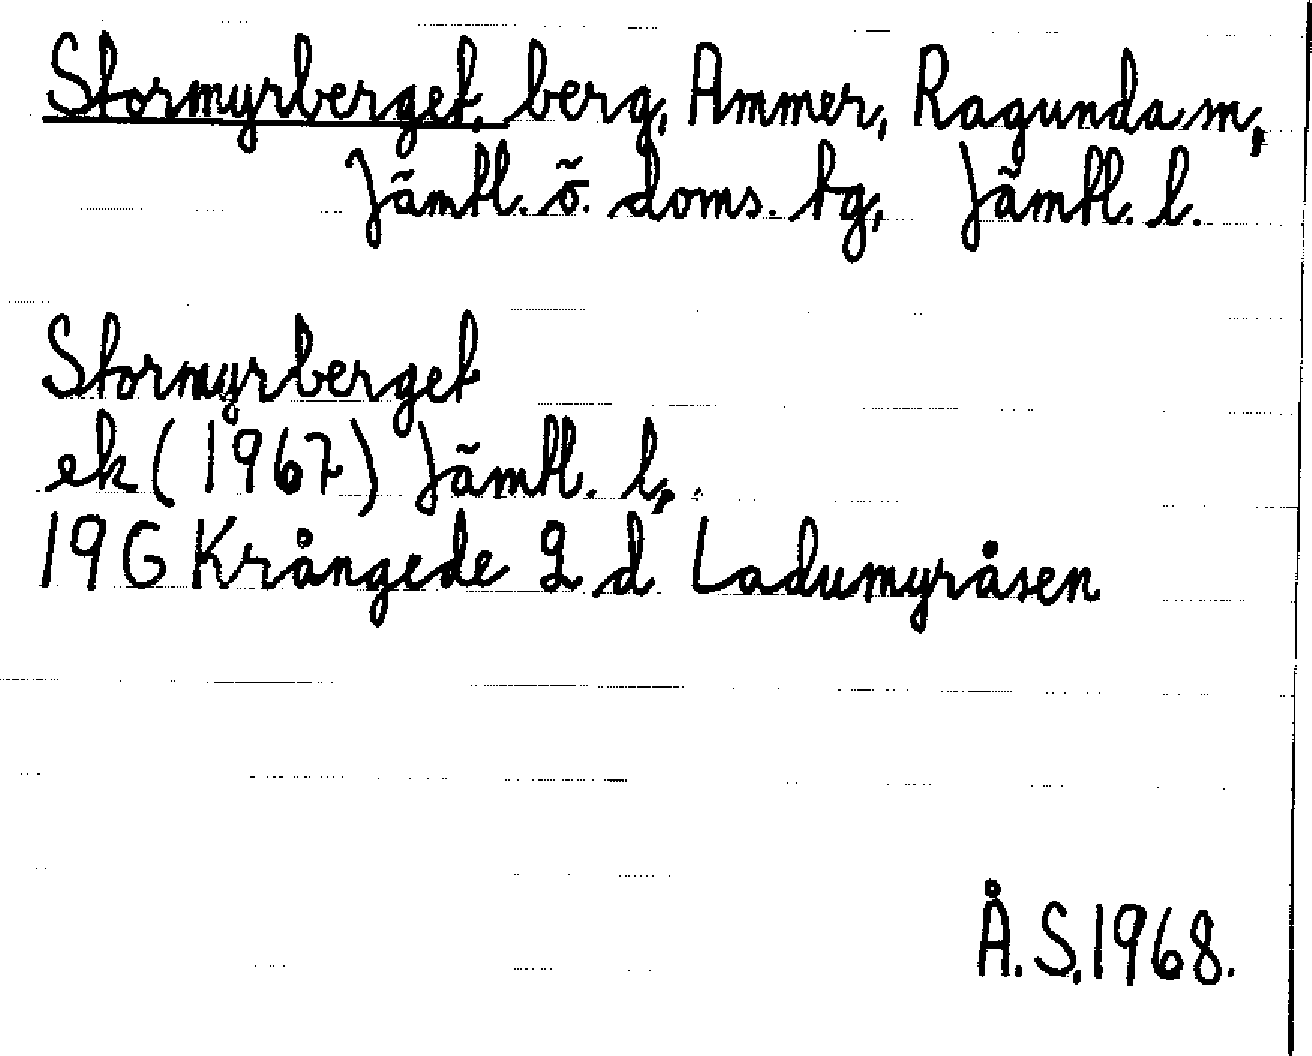 Stormyrberget, berg, Ammer, Ragunda sn,
Jämtl. ö. doms. tg, Jämtl. l.
Stormyrberget
ek (1967) Jämtl. l,.
19 G Krångede 2 d Ladumyråsen
Å.S.1968.